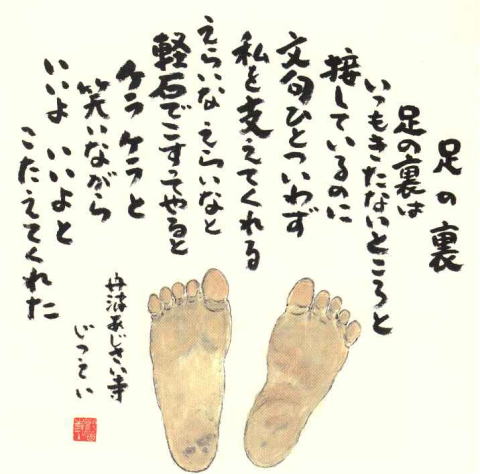 足の裏
足の裏は
いつもきたないところと
接しているのに
文句ひとついわず
私を支えてくれる
えらいなえらいなと
軽石でこすってやると
ケラケラと
笑いながら
いいよ いいよと
こたえてくれた
丹波あじさい寺
じってい